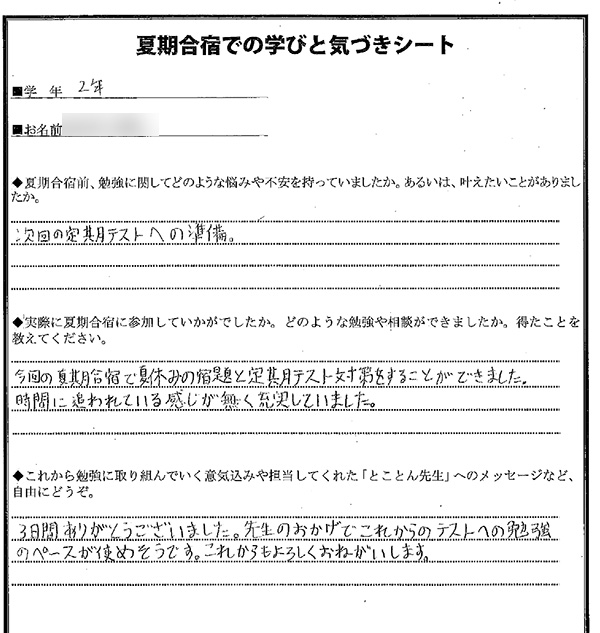 夏期合宿での学びと気づきシート
■学 年 2年
■お名前
◆夏期合宿前、勉強に関してどのような悩みや不安を持っていましたか。あるいは、叶えたいことがありまし
たか。
次回の定期テストへの準備。
◆実際に夏期合宿に参加していかがでしたか。どのような勉強や相談ができましたか。得たことを
教えてください。
今回の夏期合宿で夏休みの宿題と定期テスト対策をすることができました。
時間に追われている感じが無く充実していました。
◆これから勉強に取り組んでいく意気込みや担当してくれた「とことん先生」へのメッセージなど、
自由にどうぞ。
3日間ありがとうございました。先生のおかげでこれからのテストへの勉強
のペースが使めそうです。これからもよろしくおねがいします。